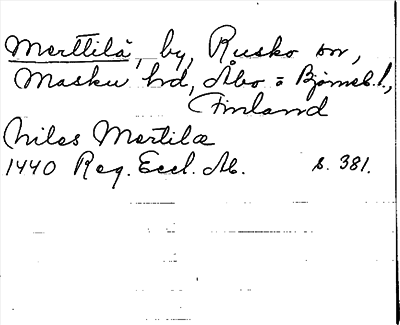 Merttilä, by, Rusko sn,
Masku hd, Åbo = Björneb. l.,
Finland
Niles Mertilæ
1440 Reg. Eccl. Ab. s. 381.